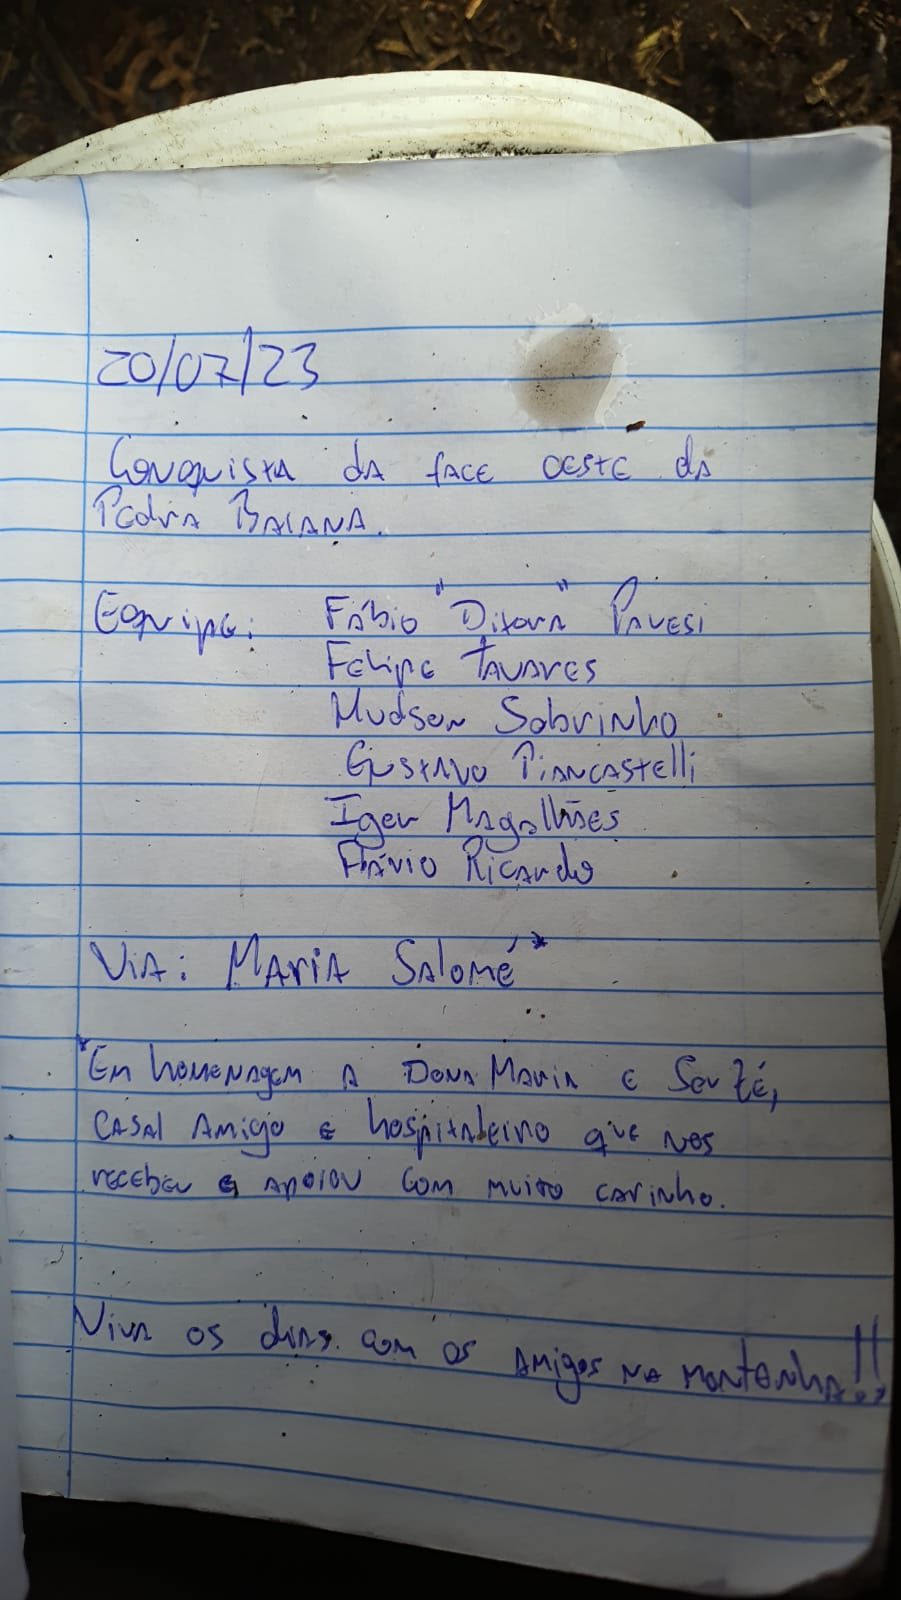 20/07/23
Conquista da face oeste da
Pedra Baiana.
Equipe: Fábio "Ditora" Pavesi
Felipe Tavares
Hudson Sobrinho
Gustavo Piancastelli
Igor Magalhães
Flávio Ricardo
Via: Maria Salomé*
*Em homenagem a Dona Maria e Seu Zé,
casal amigo e hospitaleiro que nos
recebeu e apoiou com muito carinho.
Viva os dias com os amigos na montanha!!